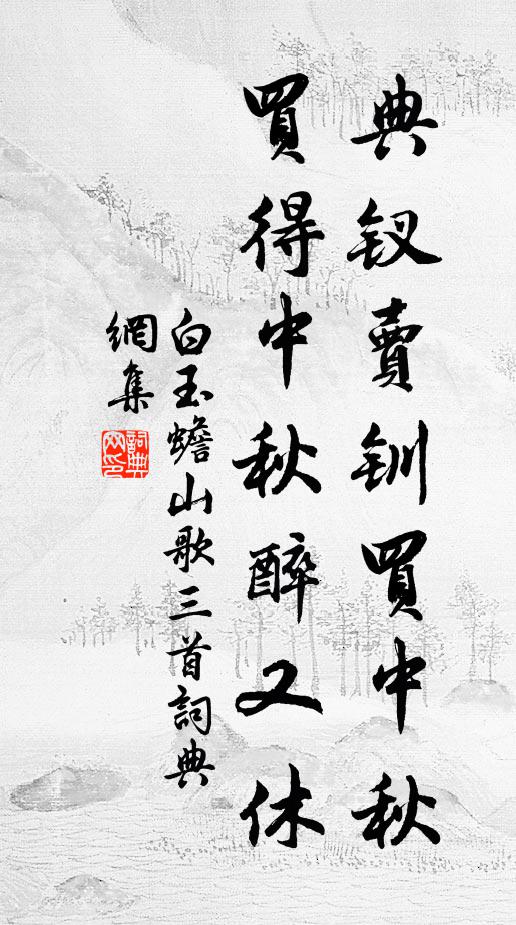 典钗賣钏買中秋
買得中秋醉又休
白玉蟾山歌三首詞典
網集
詞典網印